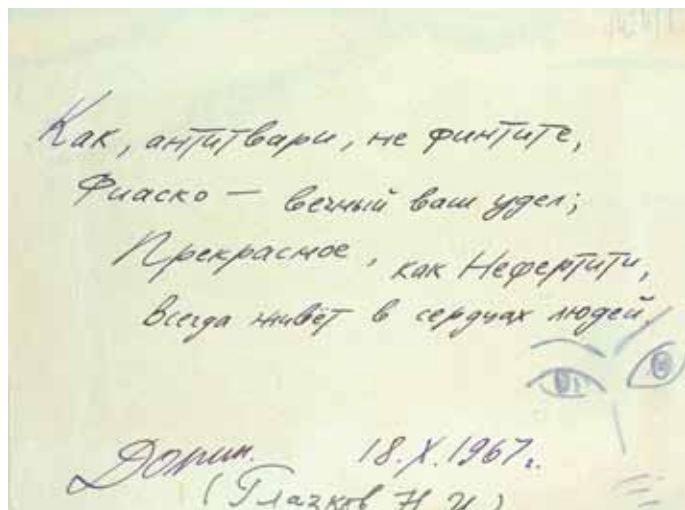 Как, антитвари, не финтите,
Фиаско — вечный ваш удел;
Прекрасное, как Нефертити,
Всегда живёт в сердцах людей.
18.X.1967г.
(Глазков Н. И.)